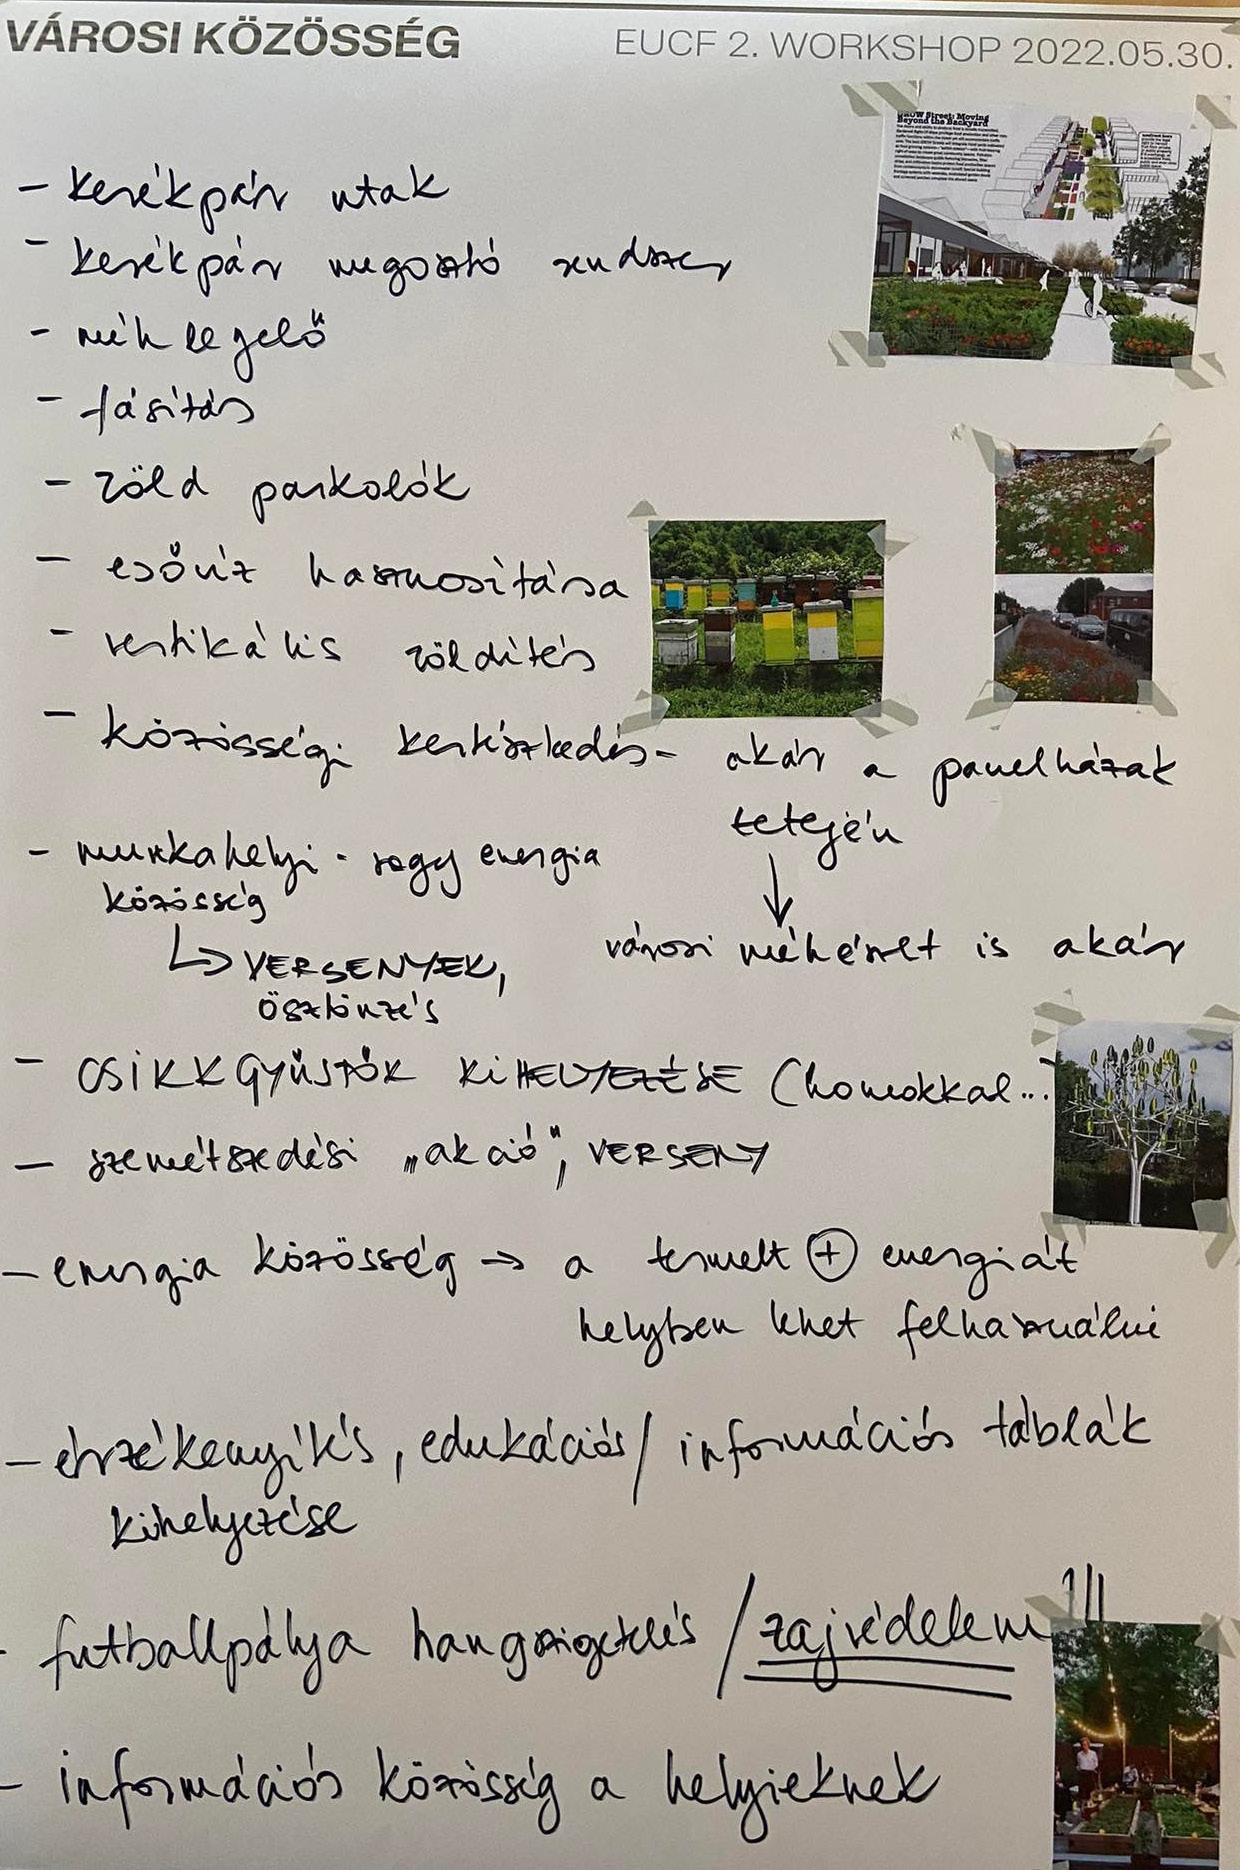 VÁROSI KÖZÖSSÉG
EUCF 2. WORKSHOP 2022.05.30.
GROW Street: Moving
Beyond the Backyard
- kerékpár utak
- kerékpár megosztó rendszer
- méhlegelő
- fásítás
- zöld parkolók
- esővíz hasznosítása
- vertikális zöldítés
- közösségi kertészkedés - akár a panelházak
tetején
↓
városi méhészet is akár
- munkahelyi - vagy energia
közösség
↳ VERSENYEK,
ösztönzés
- CSIKKGYŰJTŐK KIHELYEZÉSE (homokkal...)
- szemétszedési "akció", VERSENY
- energia közösség → a termelt ⊕ energiát
helyben lehet felhasználni
- érzékenyítés, edukációs / információs táblák
kihelyezése
- futballpálya hangszigetelés / zajvédelem!!!
- információs közösség a helyieknek